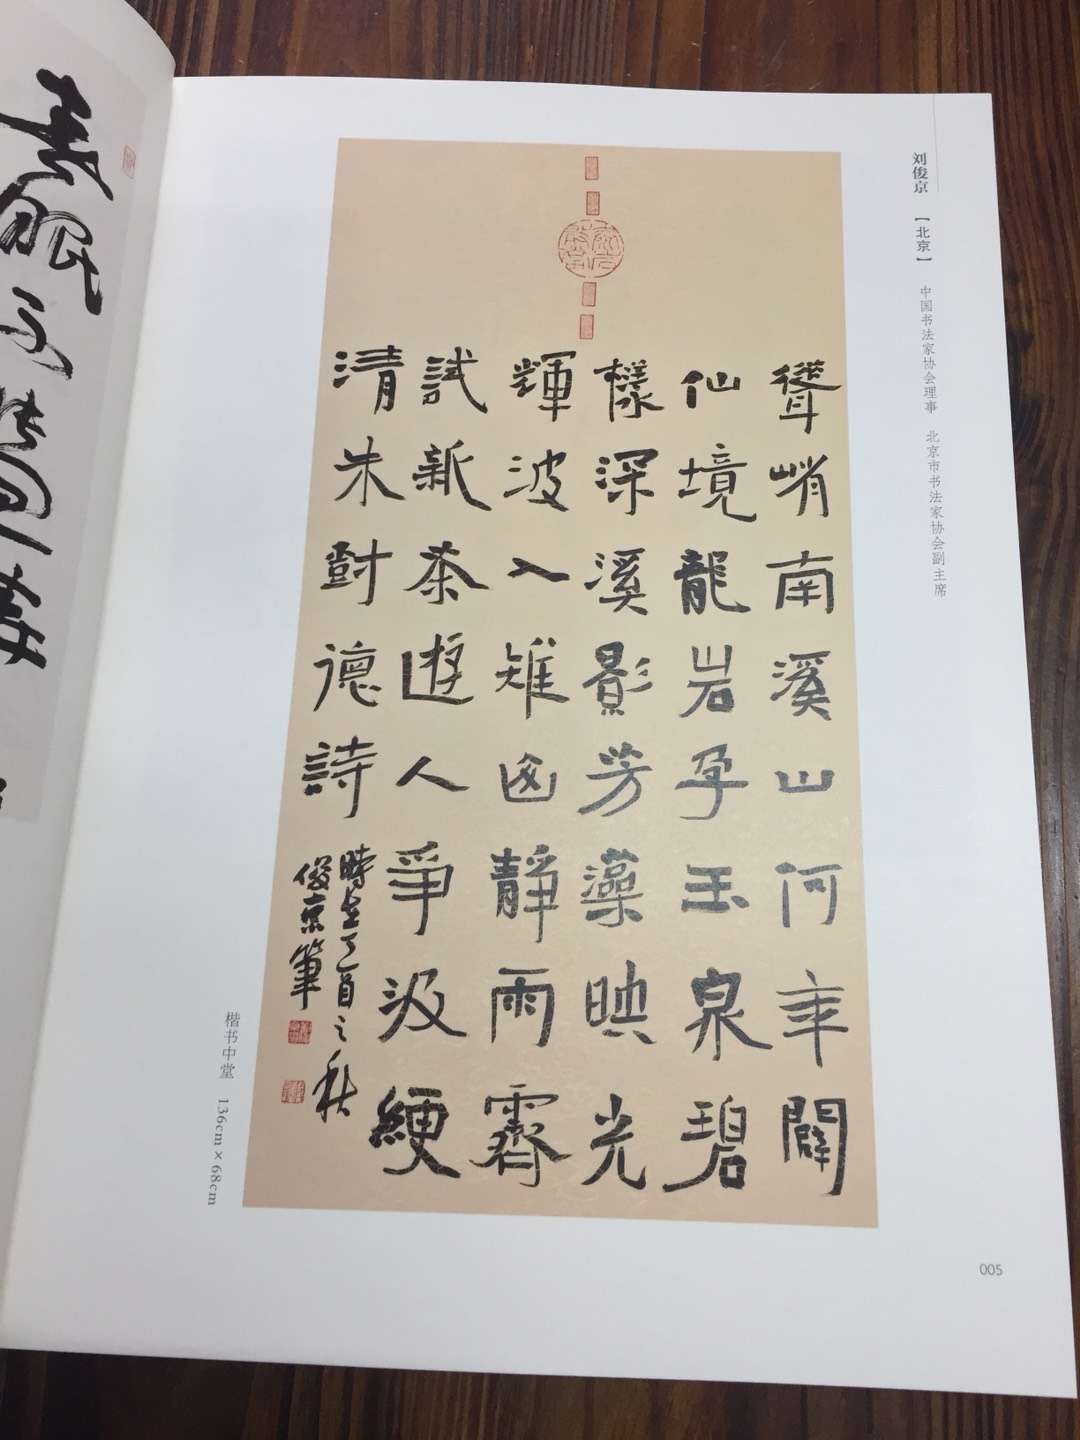 刘俊京 【北京】 中国书法家协会理事 北京市书法家协会副主席
聳峭南溪山何年闢
仙境龍岩孕玉泉碧
樣深溪影芳藻映光
輝波入雉囪靜雨霽
試新茶遊人爭汲綆
清朱對德詩
時在丁酉之秋
俊京筆
楷书中堂 136cm×68cm
005